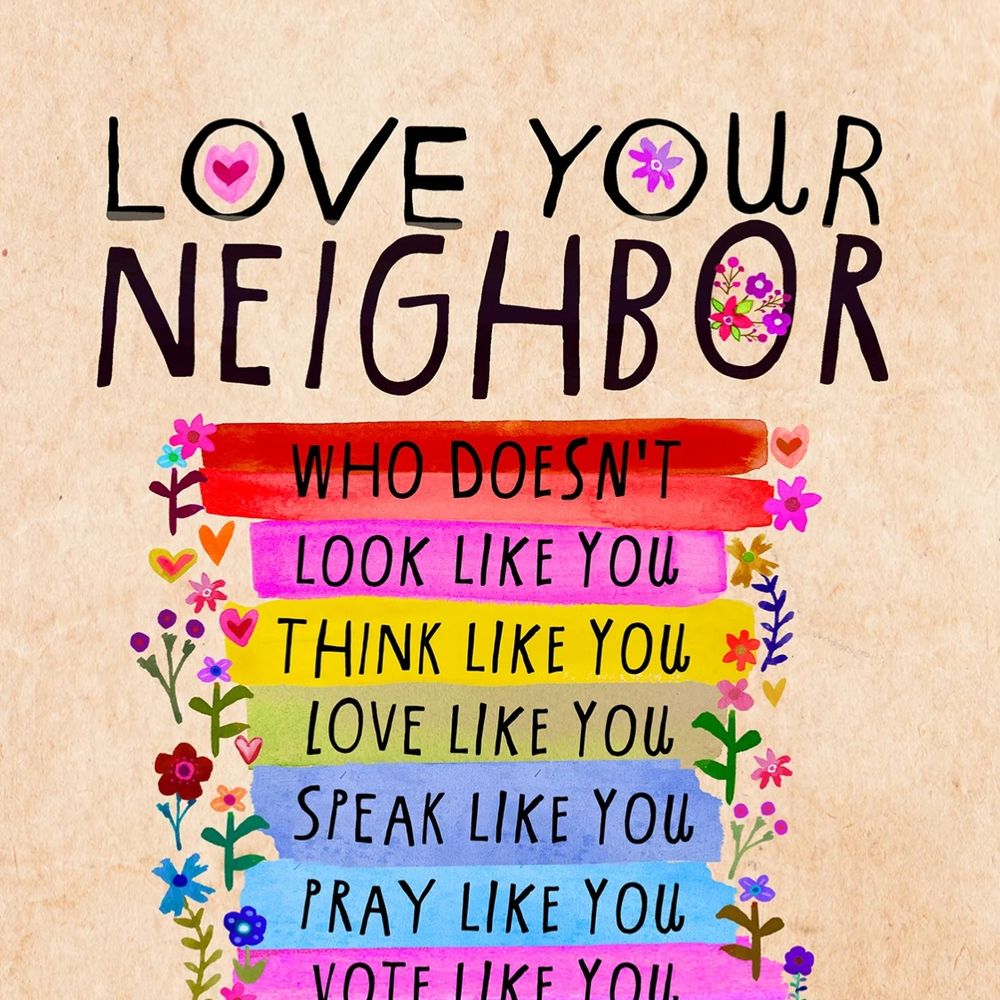 LOVE YOUR
NEIGHBOR
WHO DOESN'T
LOOK LIKE YOU
THINK LIKE YOU
LOVE LIKE YOU
SPEAK LIKE YOU
PRAY LIKE YOU
VOTE LIKE YOU